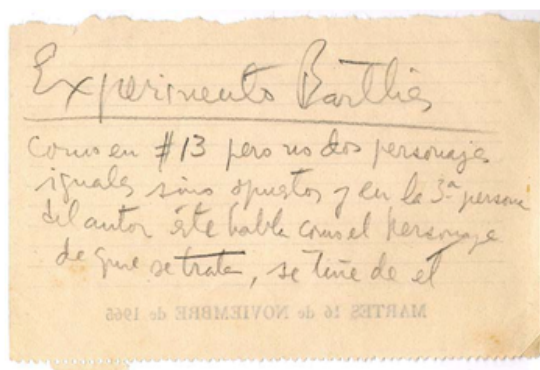 Experimento Barthes
Como en #13 pero no dos personajes
iguales sino opuestos y en la 3ª persona
del autor éste habla como el personaje
de que se trata, se tiñe de él
MARTES 16 de NOVIEMBRE de 1965